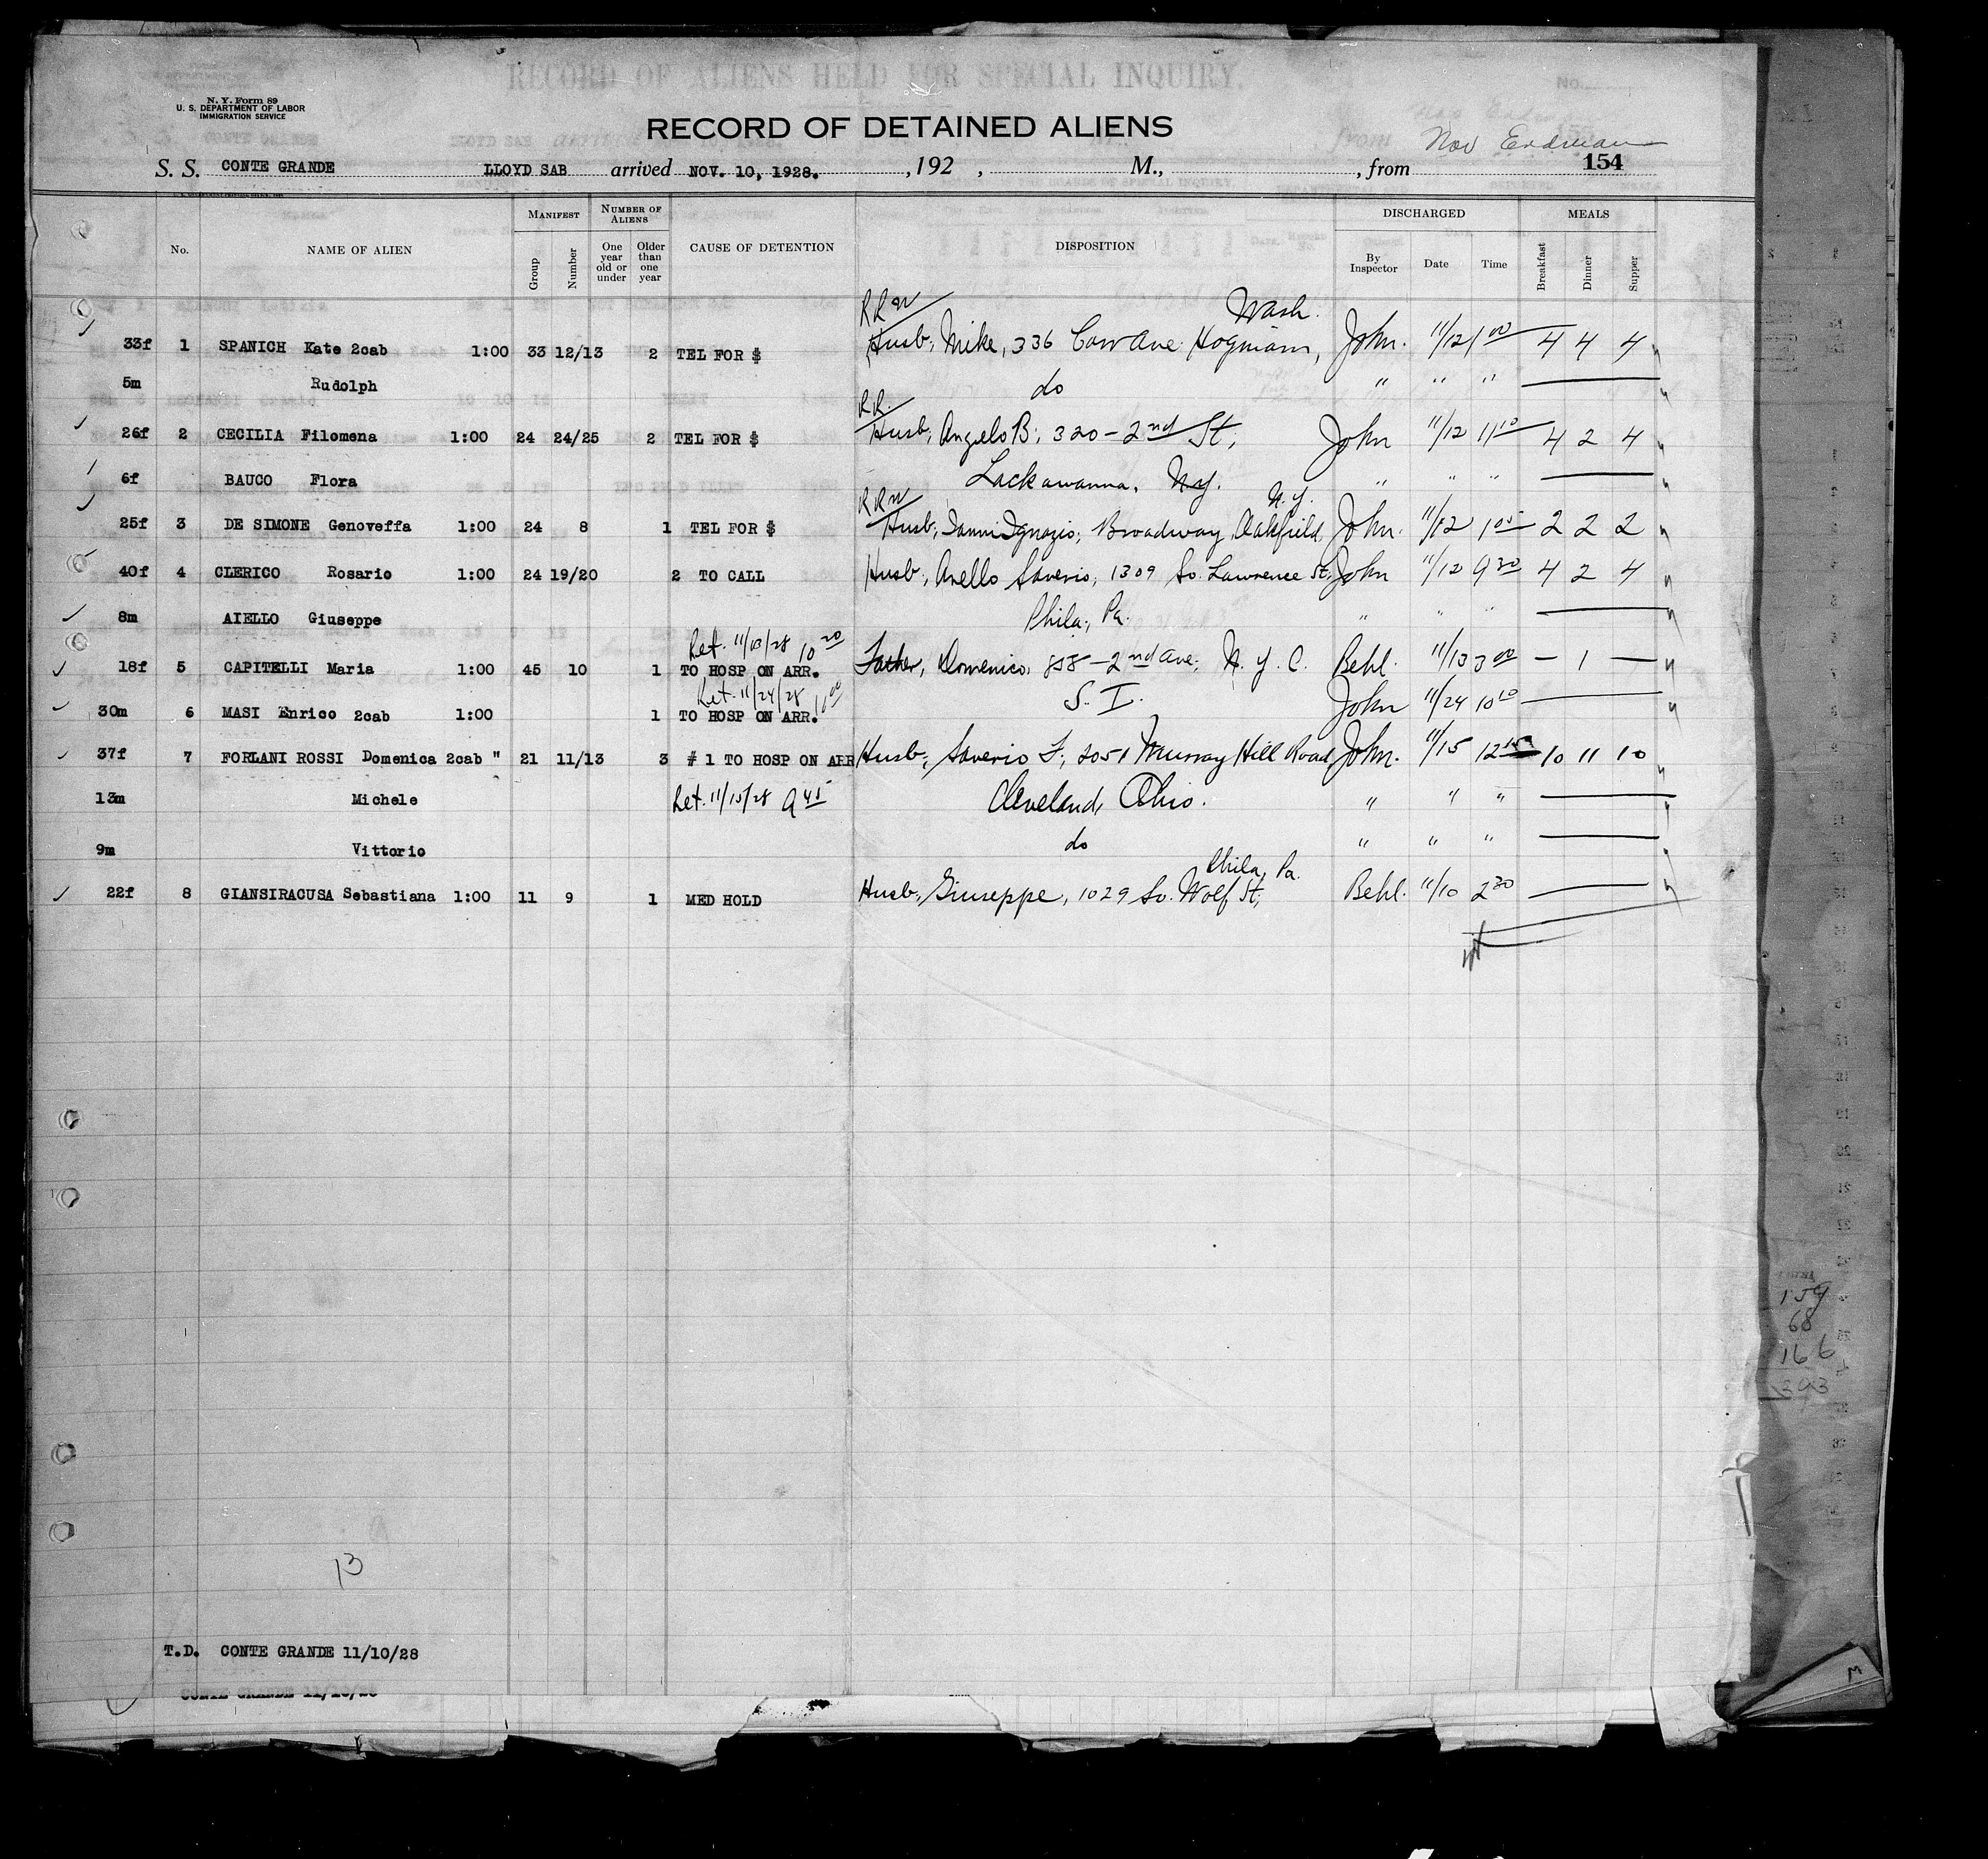 RECORD OF ALIENS HELD FOR SPECIAL INQUIRY.
No.
N. Y. Form 89
U. S. DEPARTMENT OF LABOR
IMMIGRATION SERVICE
RECORD OF DETAINED ALIENS
Nov Erdman
S. S. CONTE GRANDE LLOYD SAB arrived NOV. 10, 1928. , 192 , M., , from 154
MANIFEST NUMBER OF ALIENS DISCHARGED MEALS
No. NAME OF ALIEN Group Number One year old or under Older than one year CAUSE OF DETENTION DISPOSITION By Inspector Date Time Breakfast Dinner Supper
RRW Wash.
33f 1 SPANICH Kate 2cab 1:00 33 12/13 2 TEL FOR $ Husb, Mike, 336 Ave Hoquiam, John. 11/12 1 00 4 4 4
5m Rudolph do " " "
RR.
26f 2 CECILIA Filomena 1:00 24 24/25 2 TEL FOR $ Husb, Angelo B, 320 - 2nd St, John 11/12 11 10 4 2 4
6f BAUCO Flora Lackawanna, N.Y. " " "
RRW N.Y.
25f 3 DE SIMONE Genoveffa 1:00 24 8 1 TEL FOR $ Husb, Ianni Ignazio, Broadway Oakfield, John. 11/12 1 05 2 2 2
40f 4 CLERICO Rosario 1:00 24 19/20 2 TO CALL Husb, Aiello Saverio, 1309 So. Lawrence St, John 11/12 9 30 4 2 4
8m AIELLO Giuseppe Phila., Pa. " " "
Ret. 11/13/28 10 20
18f 5 CAPITELLI Maria 1:00 45 10 1 TO HOSP ON ARR. Father, Domenico, 858 - 2nd Ave, N. Y. C. Behl. 11/13 3 00 — 1 —
Ret. 11/24/28
30m 6 MASI Enrico 2cab 1:00 1 TO HOSP ON ARR. S. I. John 11/24 10 10
37f 7 FORLANI ROSSI Domenica 2cab " 21 11/13 3 # 1 TO HOSP ON ARR Husb, Saverio F, 2051 Murray Hill Road, John. 11/15 12 10 11 10
13m Michele Ret. 11/15/28 9 45 Cleveland, Ohio. " " "
9m Vittorio do " " "
Phila, Pa.
22f 8 GIANSIRACUSA Sebastiana 1:00 11 9 1 MED HOLD Husb, Giuseppe, 1029 So. Wolf St, Behl. 11/10 2 30
159
68
166
393
13
T.D. CONTE GRANDE 11/10/28
CONTE GRANDE 11/10/28